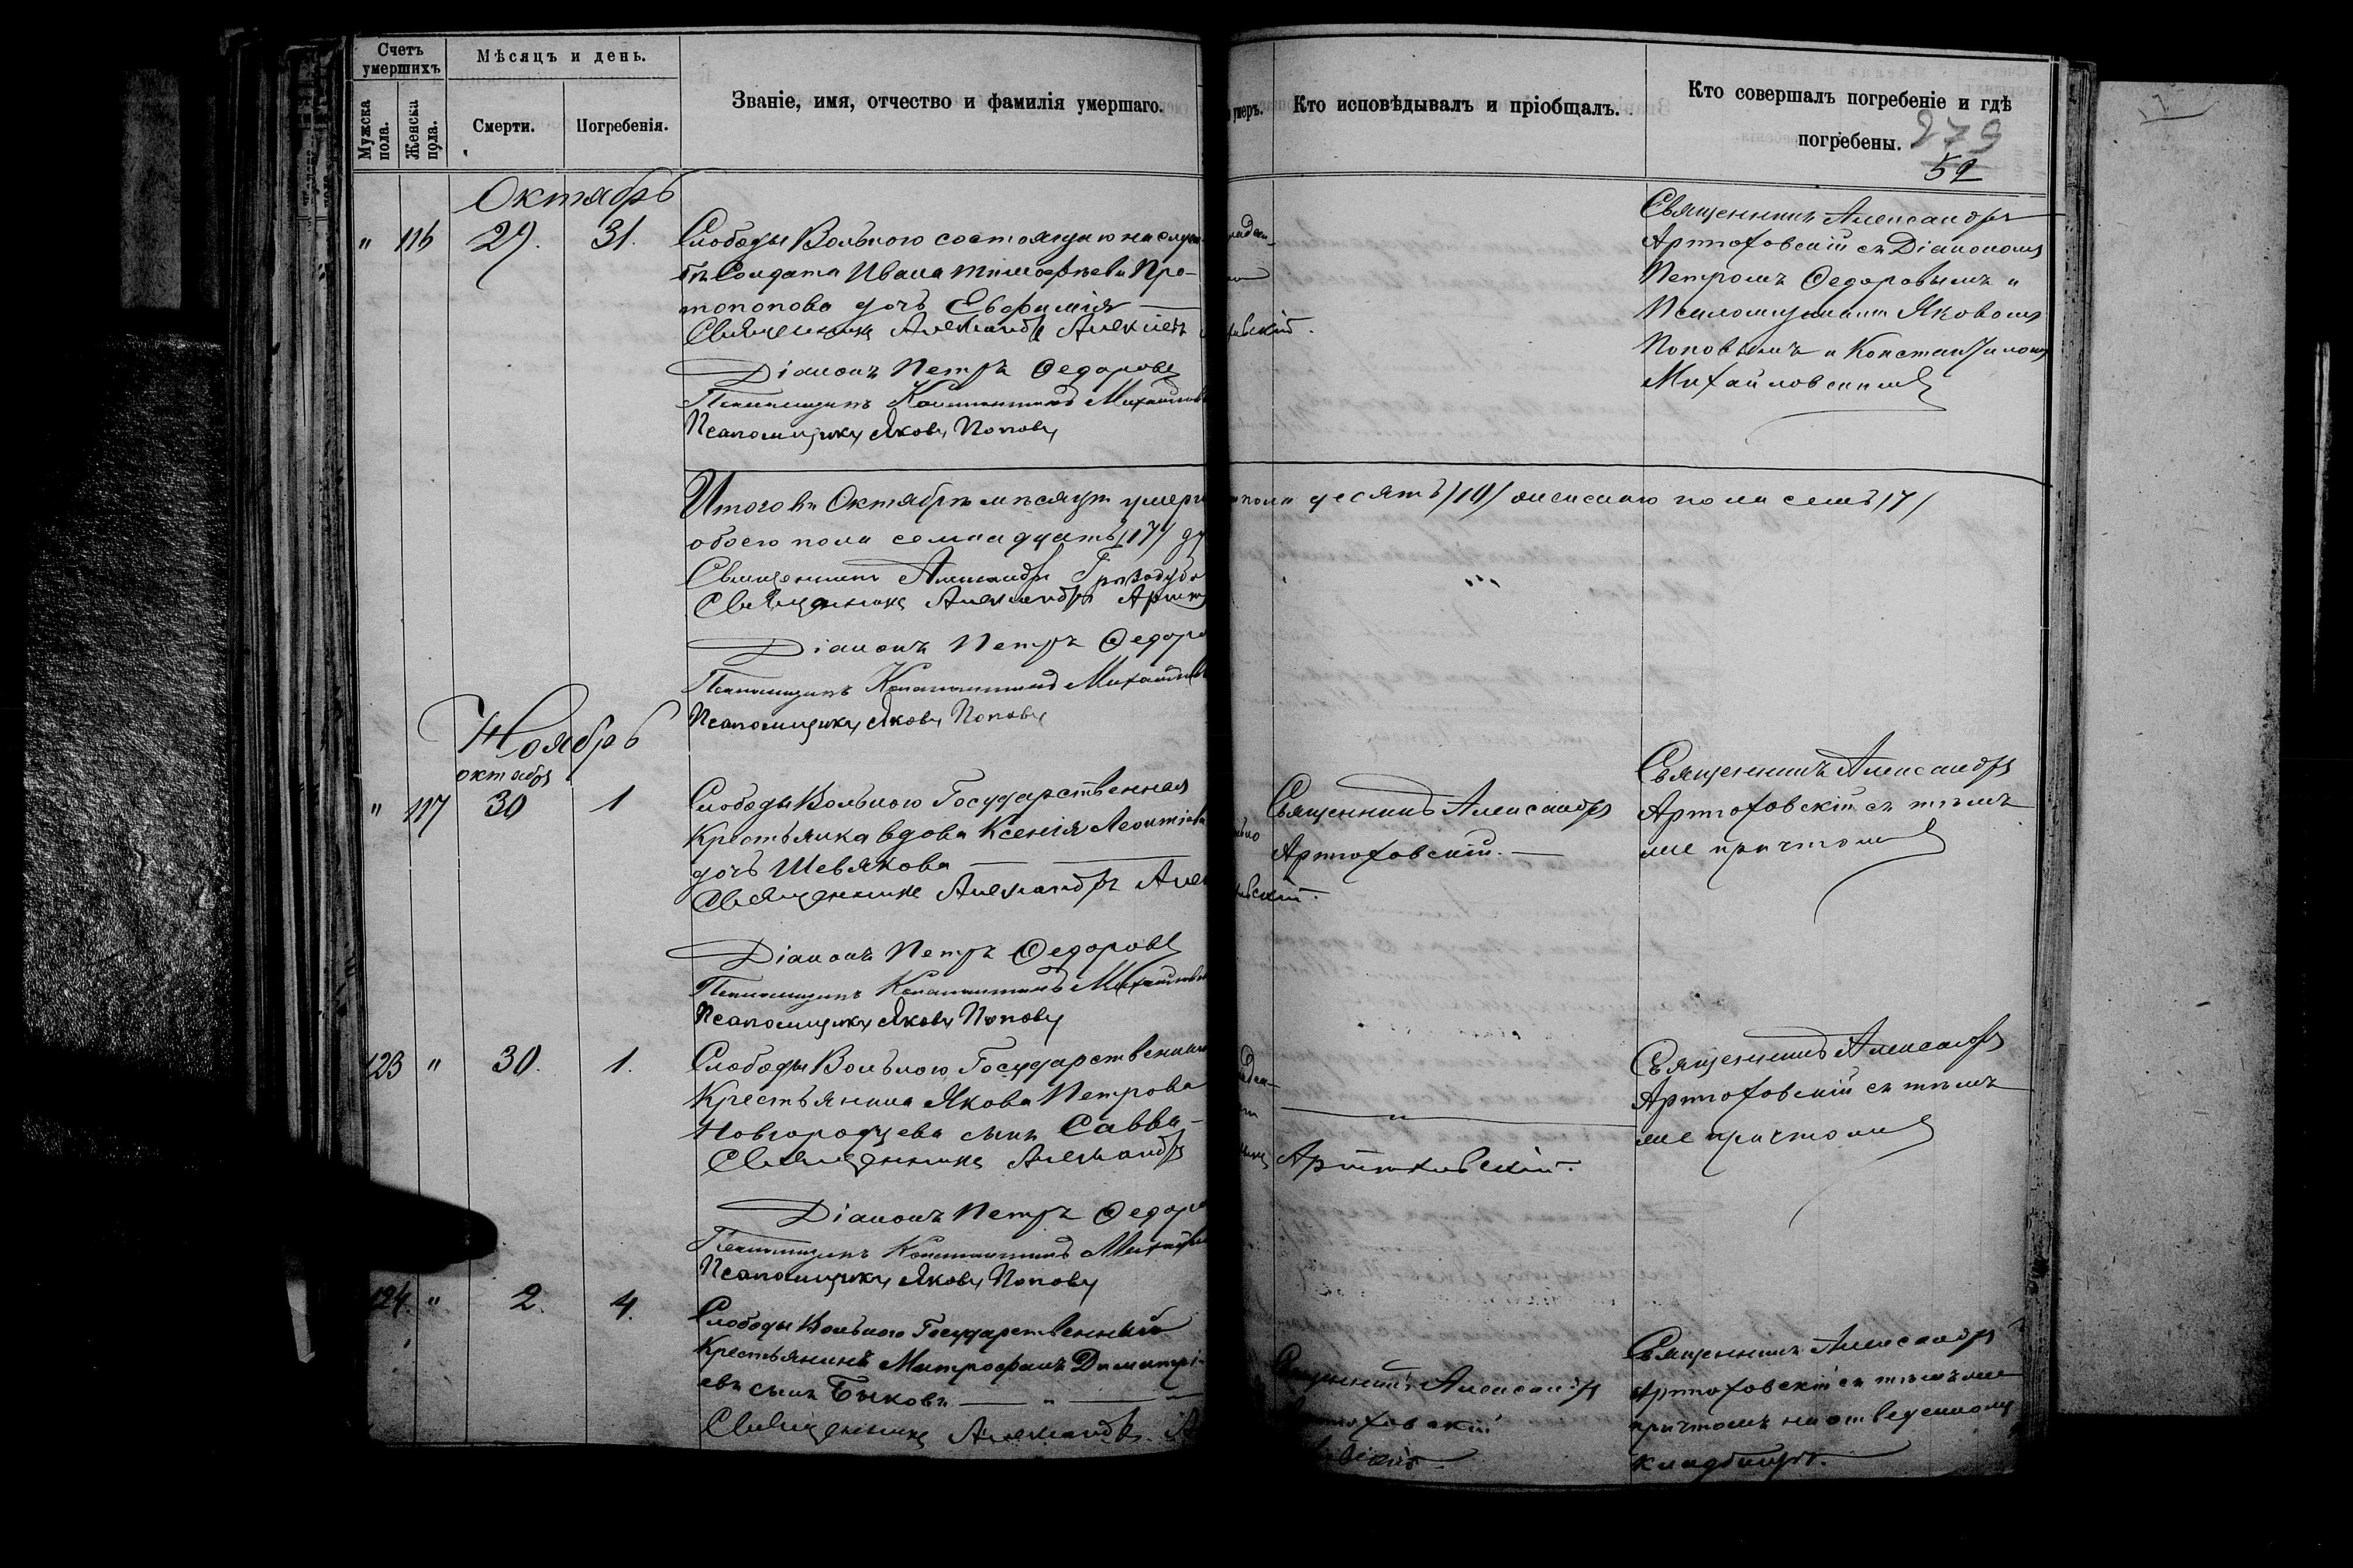 Счетъ умершихъ
Мѣсяцъ и день.
Мужска пола.
Женска пола.
Смерти.
Погребенія.
Званіе, имя, отчество и фамилія умершаго.
умеръ.
Кто исповѣдывалъ и пріобщалъ.
Кто совершалъ погребеніе и гдѣ
погребены.
279
52
Октябрь
" 116 29. 31.
Слободы Вольного состоящаго на служ
бѣ Солдата Ивана Тимофѣева Про-
топопова дочь Евфимія
Священникъ Александръ
Діаконъ Петръ Ѳедоровъ
Псаломщикъ Константинъ
Псаломщикъ Яковъ Поповъ
Священникъ Александръ
Артюховскій съ Діакономъ
Петромъ Ѳедоровымъ и
Псаломщиками Яковомъ
Поповымъ и Константиномъ
Михайловскимъ
Итого въ Октябрѣ мѣсяцѣ
пола десять /10/ женскаго пола семь /7/
обоего пола семнадцать /17/
Священникъ Александръ
Священникъ Александръ
Діаконъ Петръ
Псаломщикъ Константинъ
Псаломщикъ Яковъ Поповъ
Ноябрь
октября
" 117 30 1
Слободы Вольного Государственная
Крестьянка вдова Ксенія Леонтіева
дочь Шевякова
Священникъ Александръ
Діаконъ Петръ Ѳедоровъ
Псаломщикъ Константинъ
Псаломщикъ Яковъ Поповъ
Священникъ Александръ
Артюховскій.
Священникъ Александръ
Артюховскій съ тѣмъ
же причтомъ
123 " 30. 1.
Слободы Вольного Государственнаго
Крестьянина Якова Петрова
Новгородцева сынъ Савва
Священникъ Александръ
Артюховскій.
Діаконъ Петръ
Псаломщикъ Константинъ
Псаломщикъ Яковъ Поповъ
Священникъ Александръ
Артюховскій съ тѣмъ
же причтомъ
124. " 2. 4.
Слободы Вольного Государственный
Крестьянинъ Митрофанъ Димитрі-
евъ сынъ Быковъ
Священникъ Александръ
Священникъ Александръ
Священникъ Александръ
Артюховскій съ тѣмъ же
причтомъ на отведенномъ
кладбищѣ.